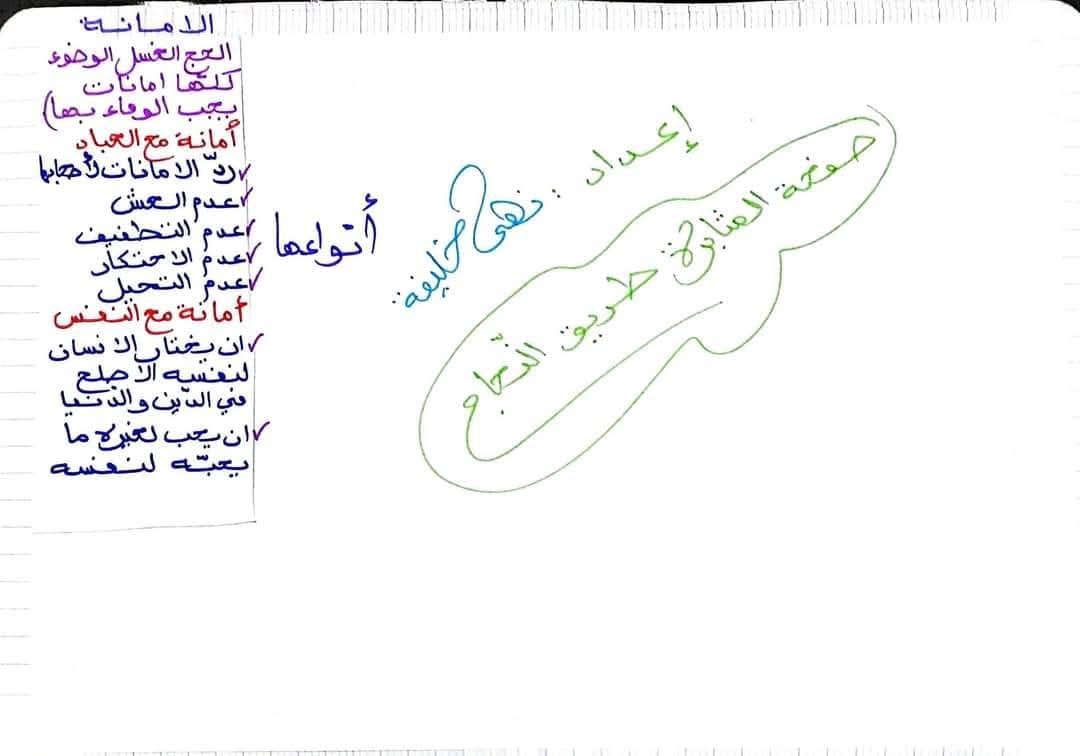 الامانة
الحج الغسل الوضوء
كلّها امانات
يجب الوفاء بها)
أمانة مع العباد
ردّ الامانات لأصحابها
عدم الغش
عدم التطفيف
عدم الاحتكار
عدم التحيل
أمانة مع النفس
ان يختار الانسان
لنفسه الأصلح
في الدّين والدّنيا
ان يحب لغيره ما
يحبّه لنفسه
أنواعها
إعداد: نهى خليفة
صفحة المثابرة طريق النّجاح